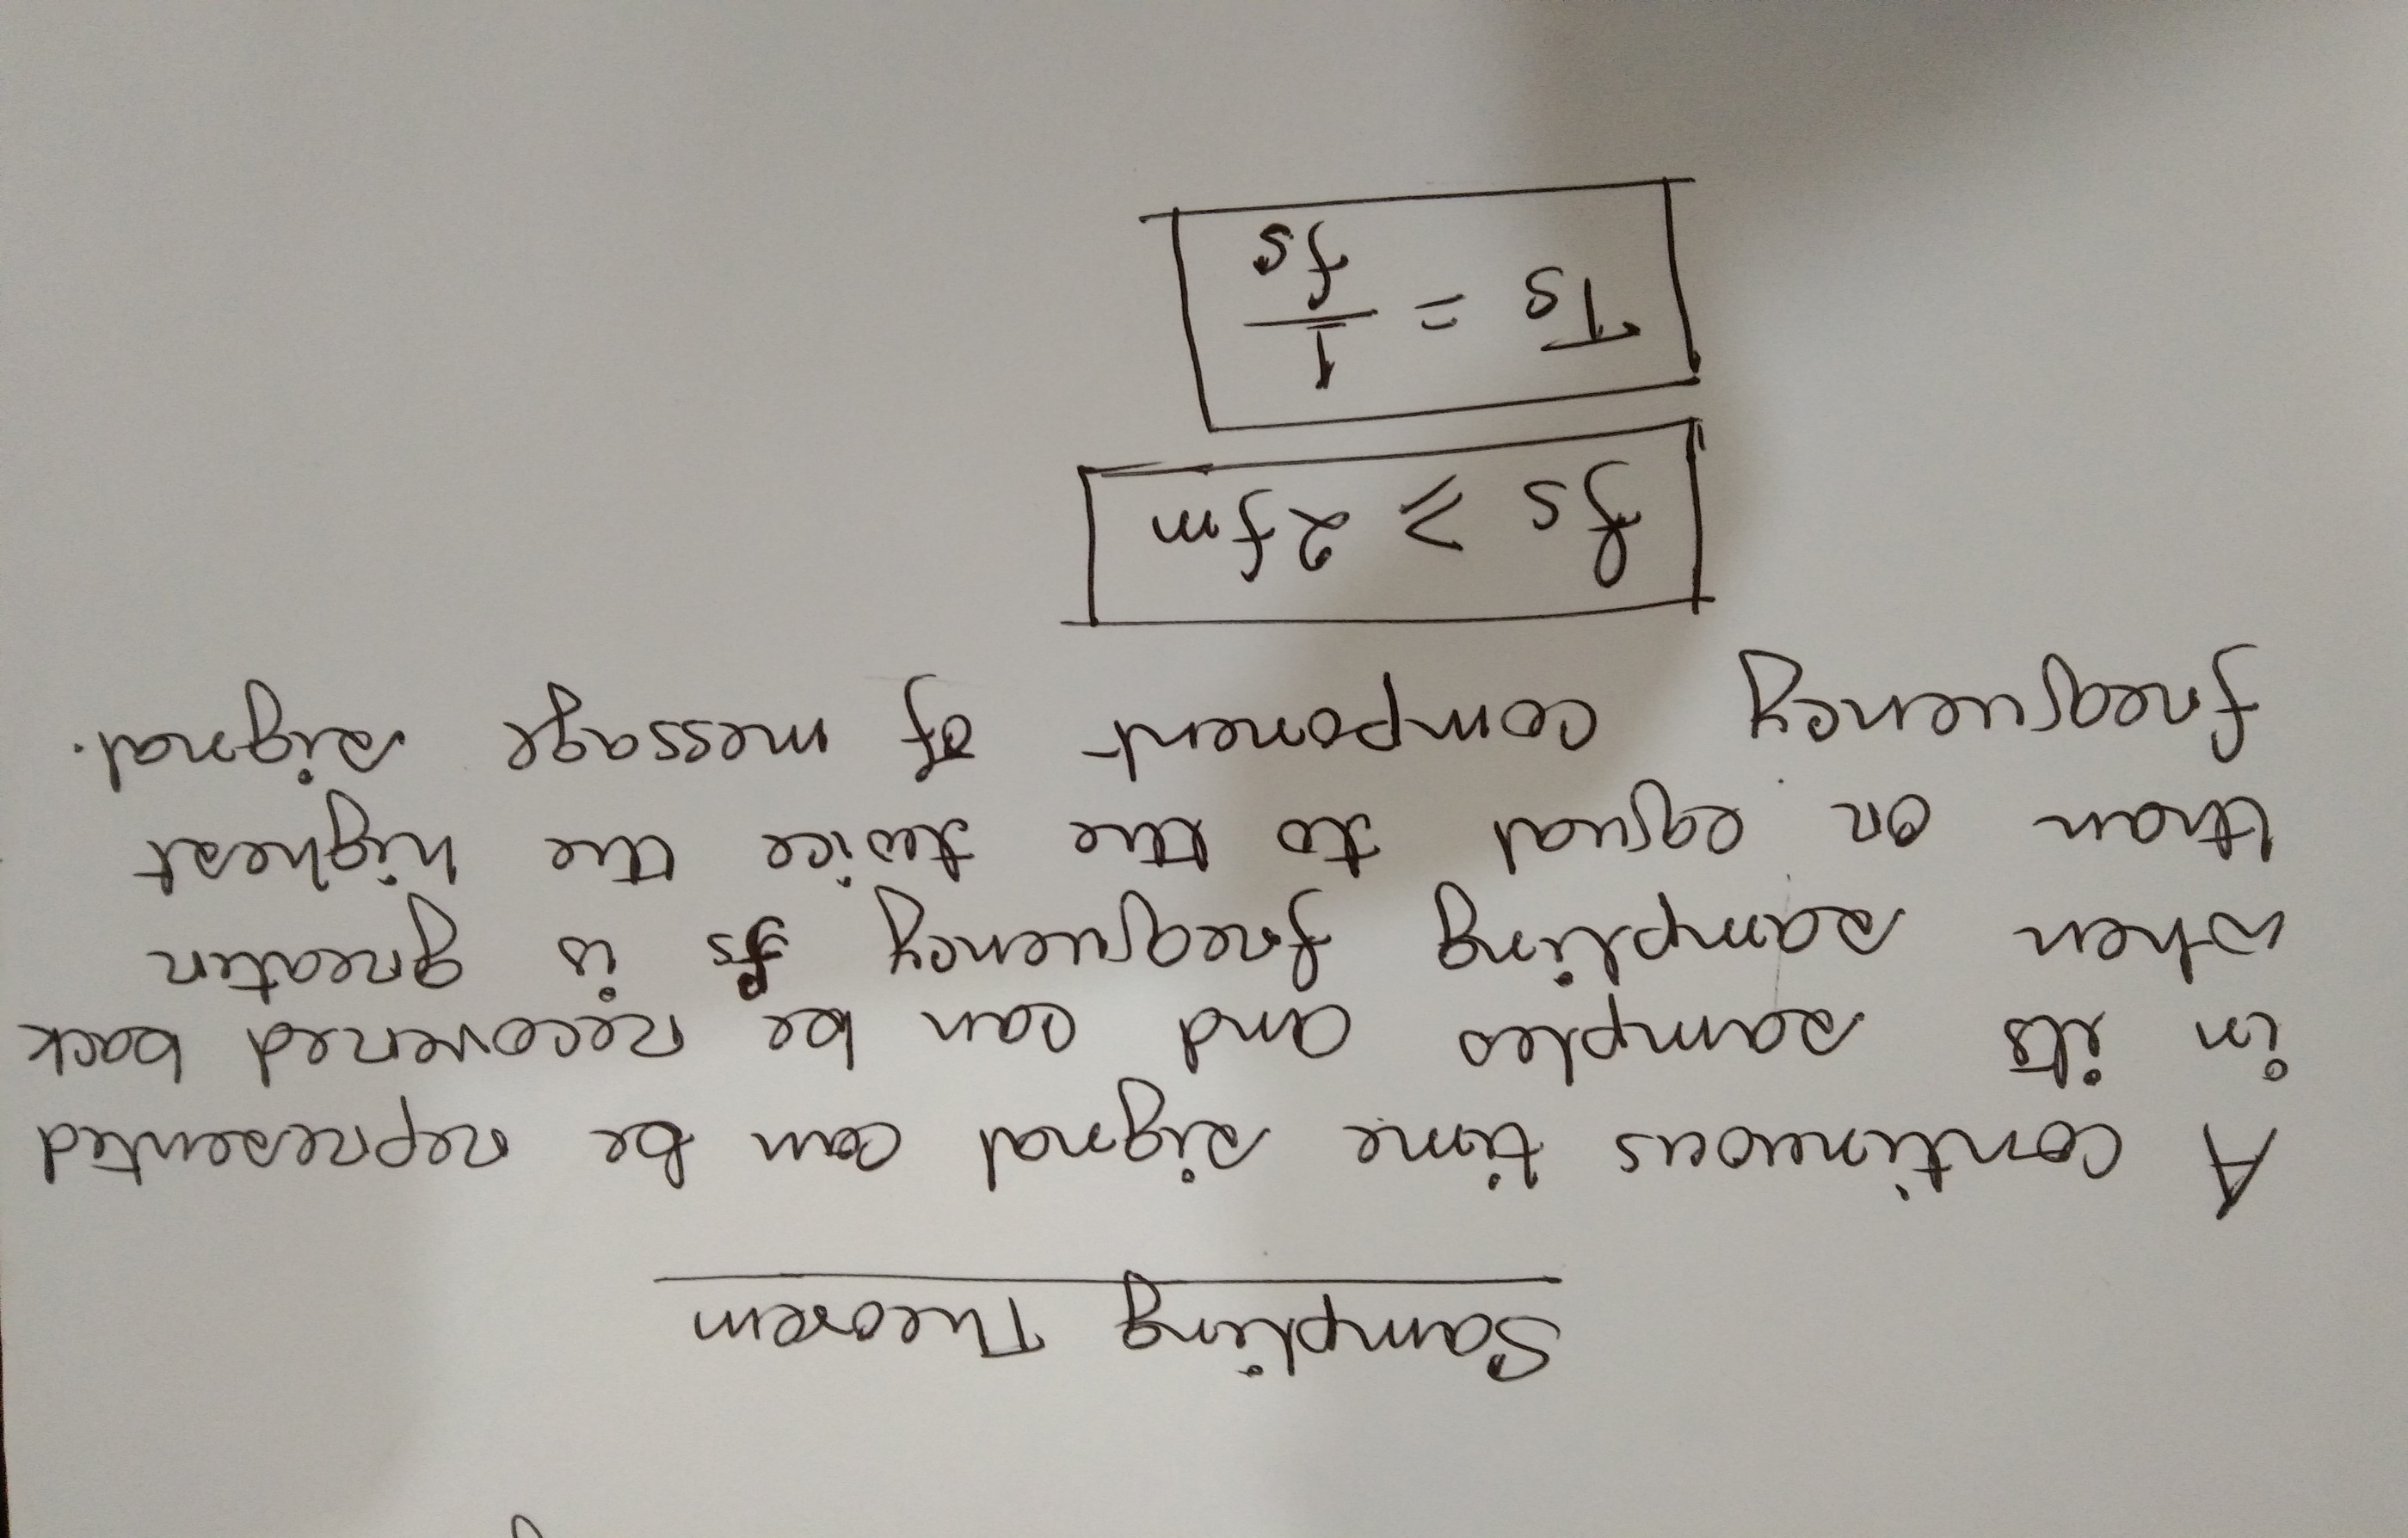 Sampling Theorem
A continuous time signal can be represented
in its samples and can be recovered back
when sampling frequency fs is greater
than or equal to the twice the highest
frequency component of message signal.
fs ⩾ 2fm
Ts = 1/fs